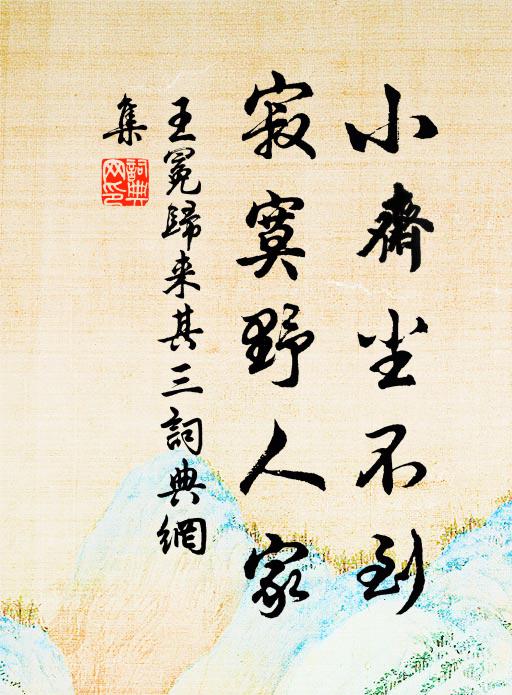 小齋尘不到
寂寞野人家
王冕歸来其三詞典網
集
詞典
网印